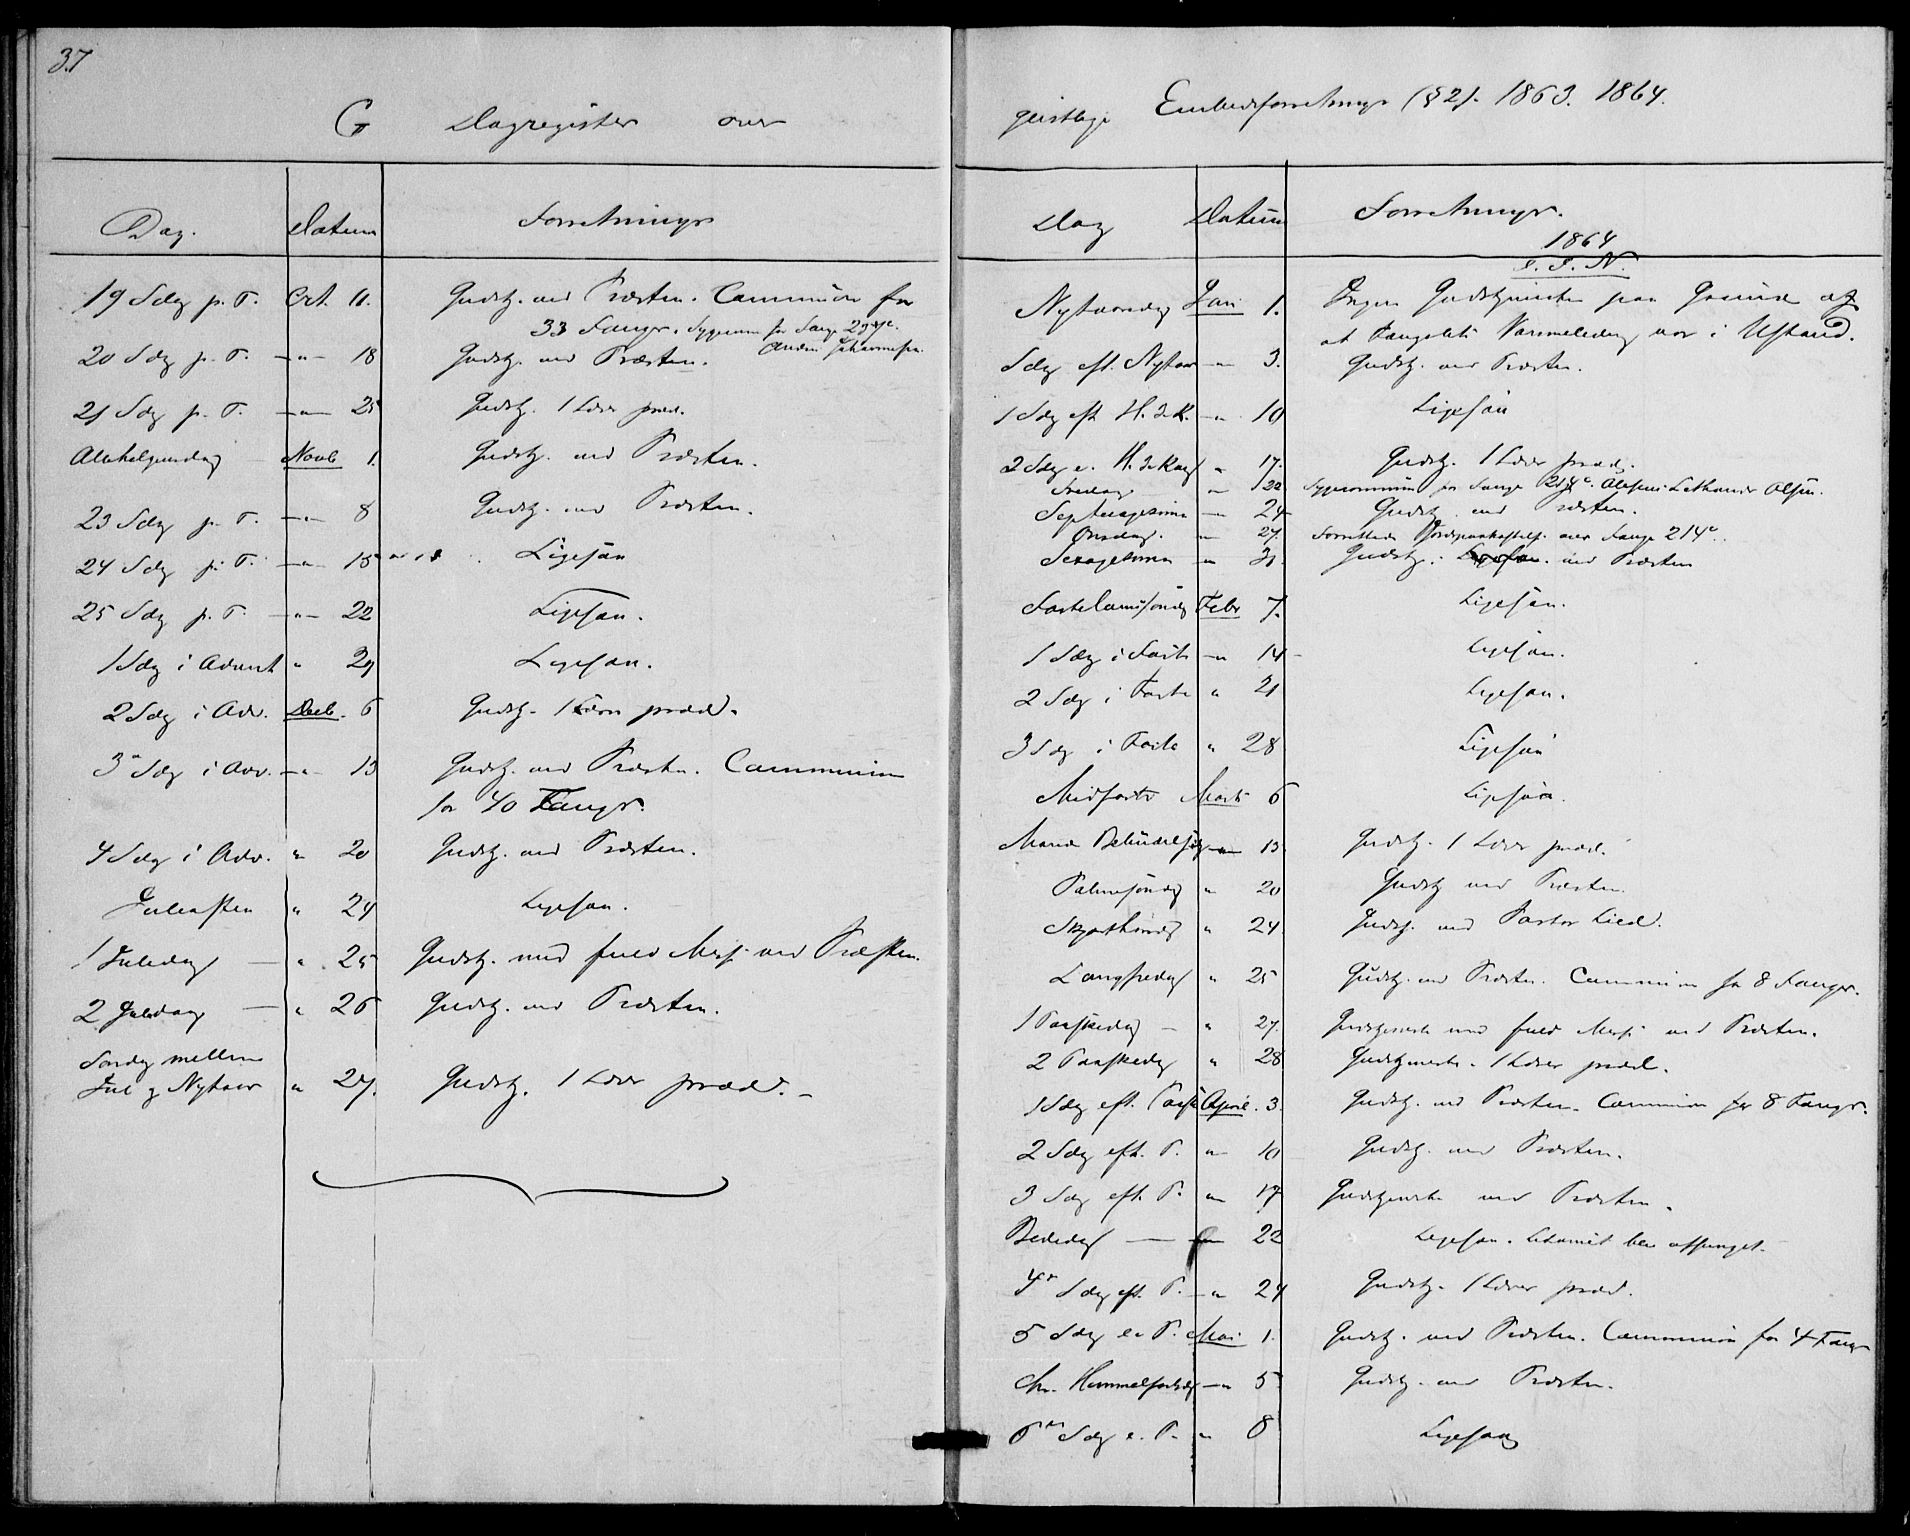 37
G Dagregister over
Dag. Datum Forretninger
19 Sdg p. T. Oct. 11. Gudstj. ved Præsten. Communion for
33 Fanger. Sygecom. for Fange
20 Sdg p. T. -"- 18 Gudstj. ved Præsten. Andr. Johannesen.
21 Sdg p. T. -"- 25 Gudstj. 1 Lærer præd.
Allehelgensdag Novb 1. Gudstj. ved Præsten.
23 Sdg p. T. -"- 8 Gudstj. ved Præsten.
24 Sdg p. T. -"- 15 Ligesaa
25 Sdg p. T. -"- 22 Ligesaa.
1 Sdg i Advent " 29 Ligesaa.
2 Sdg i Adv. Decb. 6 Gudstj. 1 Lærer præd.
3 Sdg i Adv. -"- 13 Gudstj. ved Præsten. Communion
for 40 Fanger.
4 Sdg i Adv. " 20 Gudstj. ved Præsten.
Juleaften " 24 Ligesaa.
1 Juledag — " 25 Gudstj. med fuld Messe ved Præsten.
2 Juledag — " 26 Gudstj. ved Præsten.
Søndag mellem
Jul og Nytaar " 27. Gudstj. 1 Lærer præd. -
geistlige Embedsforretninger (§ 2). 1863. 1864.
Dag Datum Forretninger.
1864
I. J. N.
Nytaarsdag Jan 1. Ingen Gudstjeneste paa Grund af
at Fængslets Varmeledning var i Ustand.
Sdg eft. Nytaar -"- 3. Gudstj. ved Præsten.
1 Sdg eft H. 3 K. -"- 10 Ligesaa
2 Sdg e. H. 3 Kong " 17. Gudstj. 1 Lærer præd.
Fredag " 22 Sygecommunion for Fange 214 Olsen.
Septuagesima -"- 24 Gudstj. ved Præsten.
Onsdag. -"- 27. Forrettede Jordpaakastelse over Fange 214
Sexagesima " 31. Gudstj. Ligesaa. ved Præsten
Fastelavnssøndag Febr 7. Ligesaa.
1 Sdg i Faste -"- 14 Ligesaa.
2 Sdg i Faste " 21 Ligesaa.
3 Sdg i Faste " 28 Ligesaa
Midfaste Marts 6 Ligesaa.
Maria Bebudelsesdg -"- 13. Gudstj. 1 Lærer præd.
Palmesøndag " 20 Gudstj ved Præsten.
Skjærthorsdag " 24. Gudstj. ved Pastor Lied.
Langfredag " 25 Gudstj. ved Præsten. Communion for 8 Fanger.
1 Paaskedag - " 27. Gudstjeneste med fuld Messe ved Præsten.
2 Paaskedag " 28 Gudstjeneste. 1 Lærer præd.
1 Sdg eft. Paaske April. 3. Gudstj. ved Præsten. Communion for 8 Fanger.
2 Sdg eft. P. " 10 Gudstj. ved Præsten.
3 Sdg eft. P. " 17 Gudstjeneste ved Præsten.
Bededag — " 22 Ligesaa. Litaniet blev afsunget.
4de Sdg eft. P. -"- 24 Gudstj. 1 Lærer præd.
5 Sdg e. P. Mai 1. Gudstj. ved Præsten. Communion for 4 Fanger
Chr. Himmelfartsdg -"- 5 Gudstj. ved Præsten.
6te Sdg e. P. " 8 Ligesaa